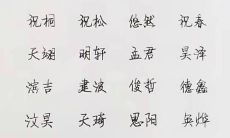 祝桐 祝松 悠然 祝春
天翊 明轩 孟君 昊泽
滨吉 建波 俊哲 德鑫
汶昊 天琦 思阳 英烨